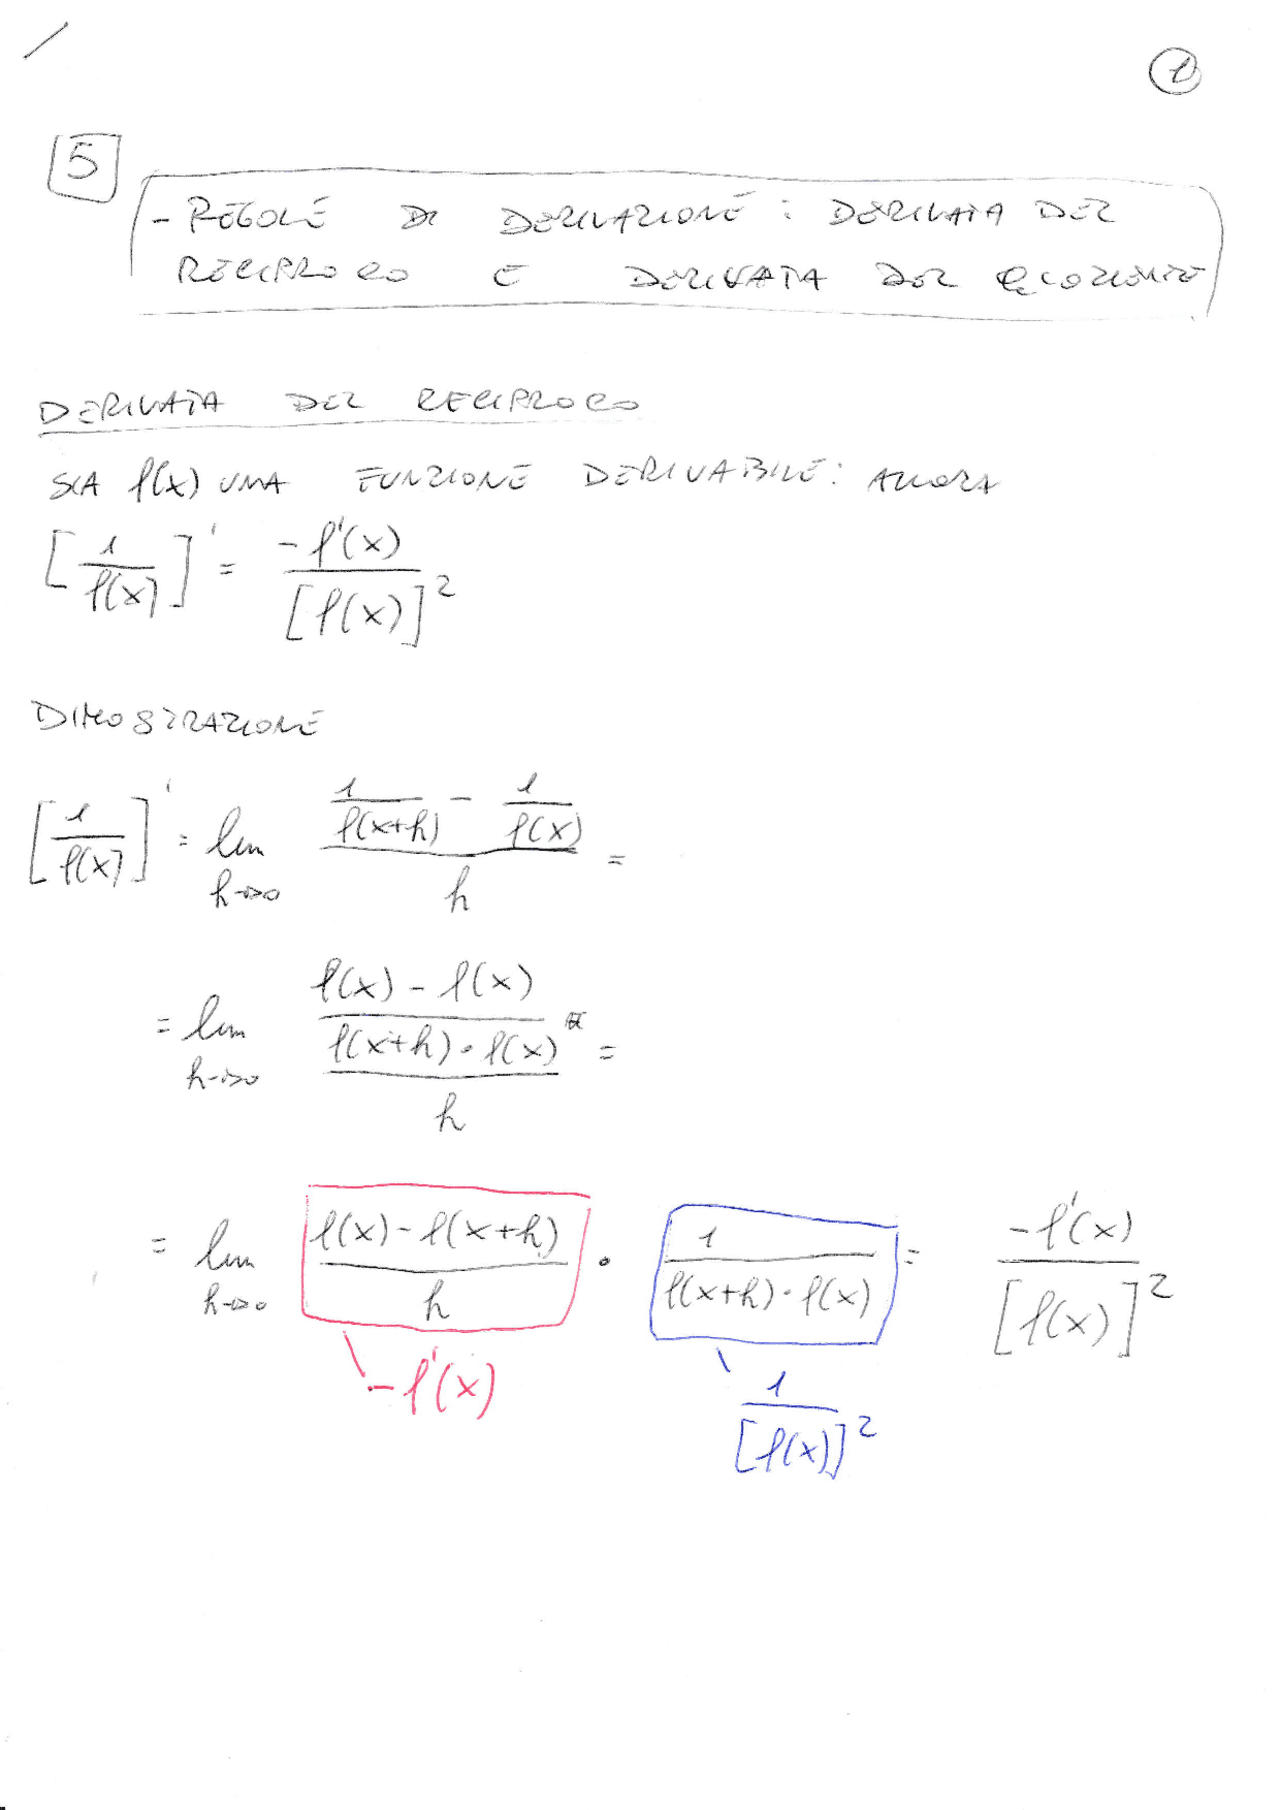 1
5
- REGOLE DI DERIVAZIONE: DERIVATA DEL
RECIPROCO E DERIVATA DEL QUOZIENTE
DERIVATA DEL RECIPROCO
SIA f(x) UNA FUNZIONE DERIVABILE: ALLORA
[1/f(x)]' = -f'(x)/[f(x)]²
DIMOSTRAZIONE
[1/f(x)]' = lim h→0 (1/f(x+h) - 1/f(x))/h =
= lim h→0 ((f(x) - f(x))/(f(x+h)·f(x)))/h =
= lim h→0 (f(x) - f(x+h))/h · 1/(f(x+h)·f(x)) = -f'(x)/[f(x)]²
-f'(x)
1/[f(x)]²